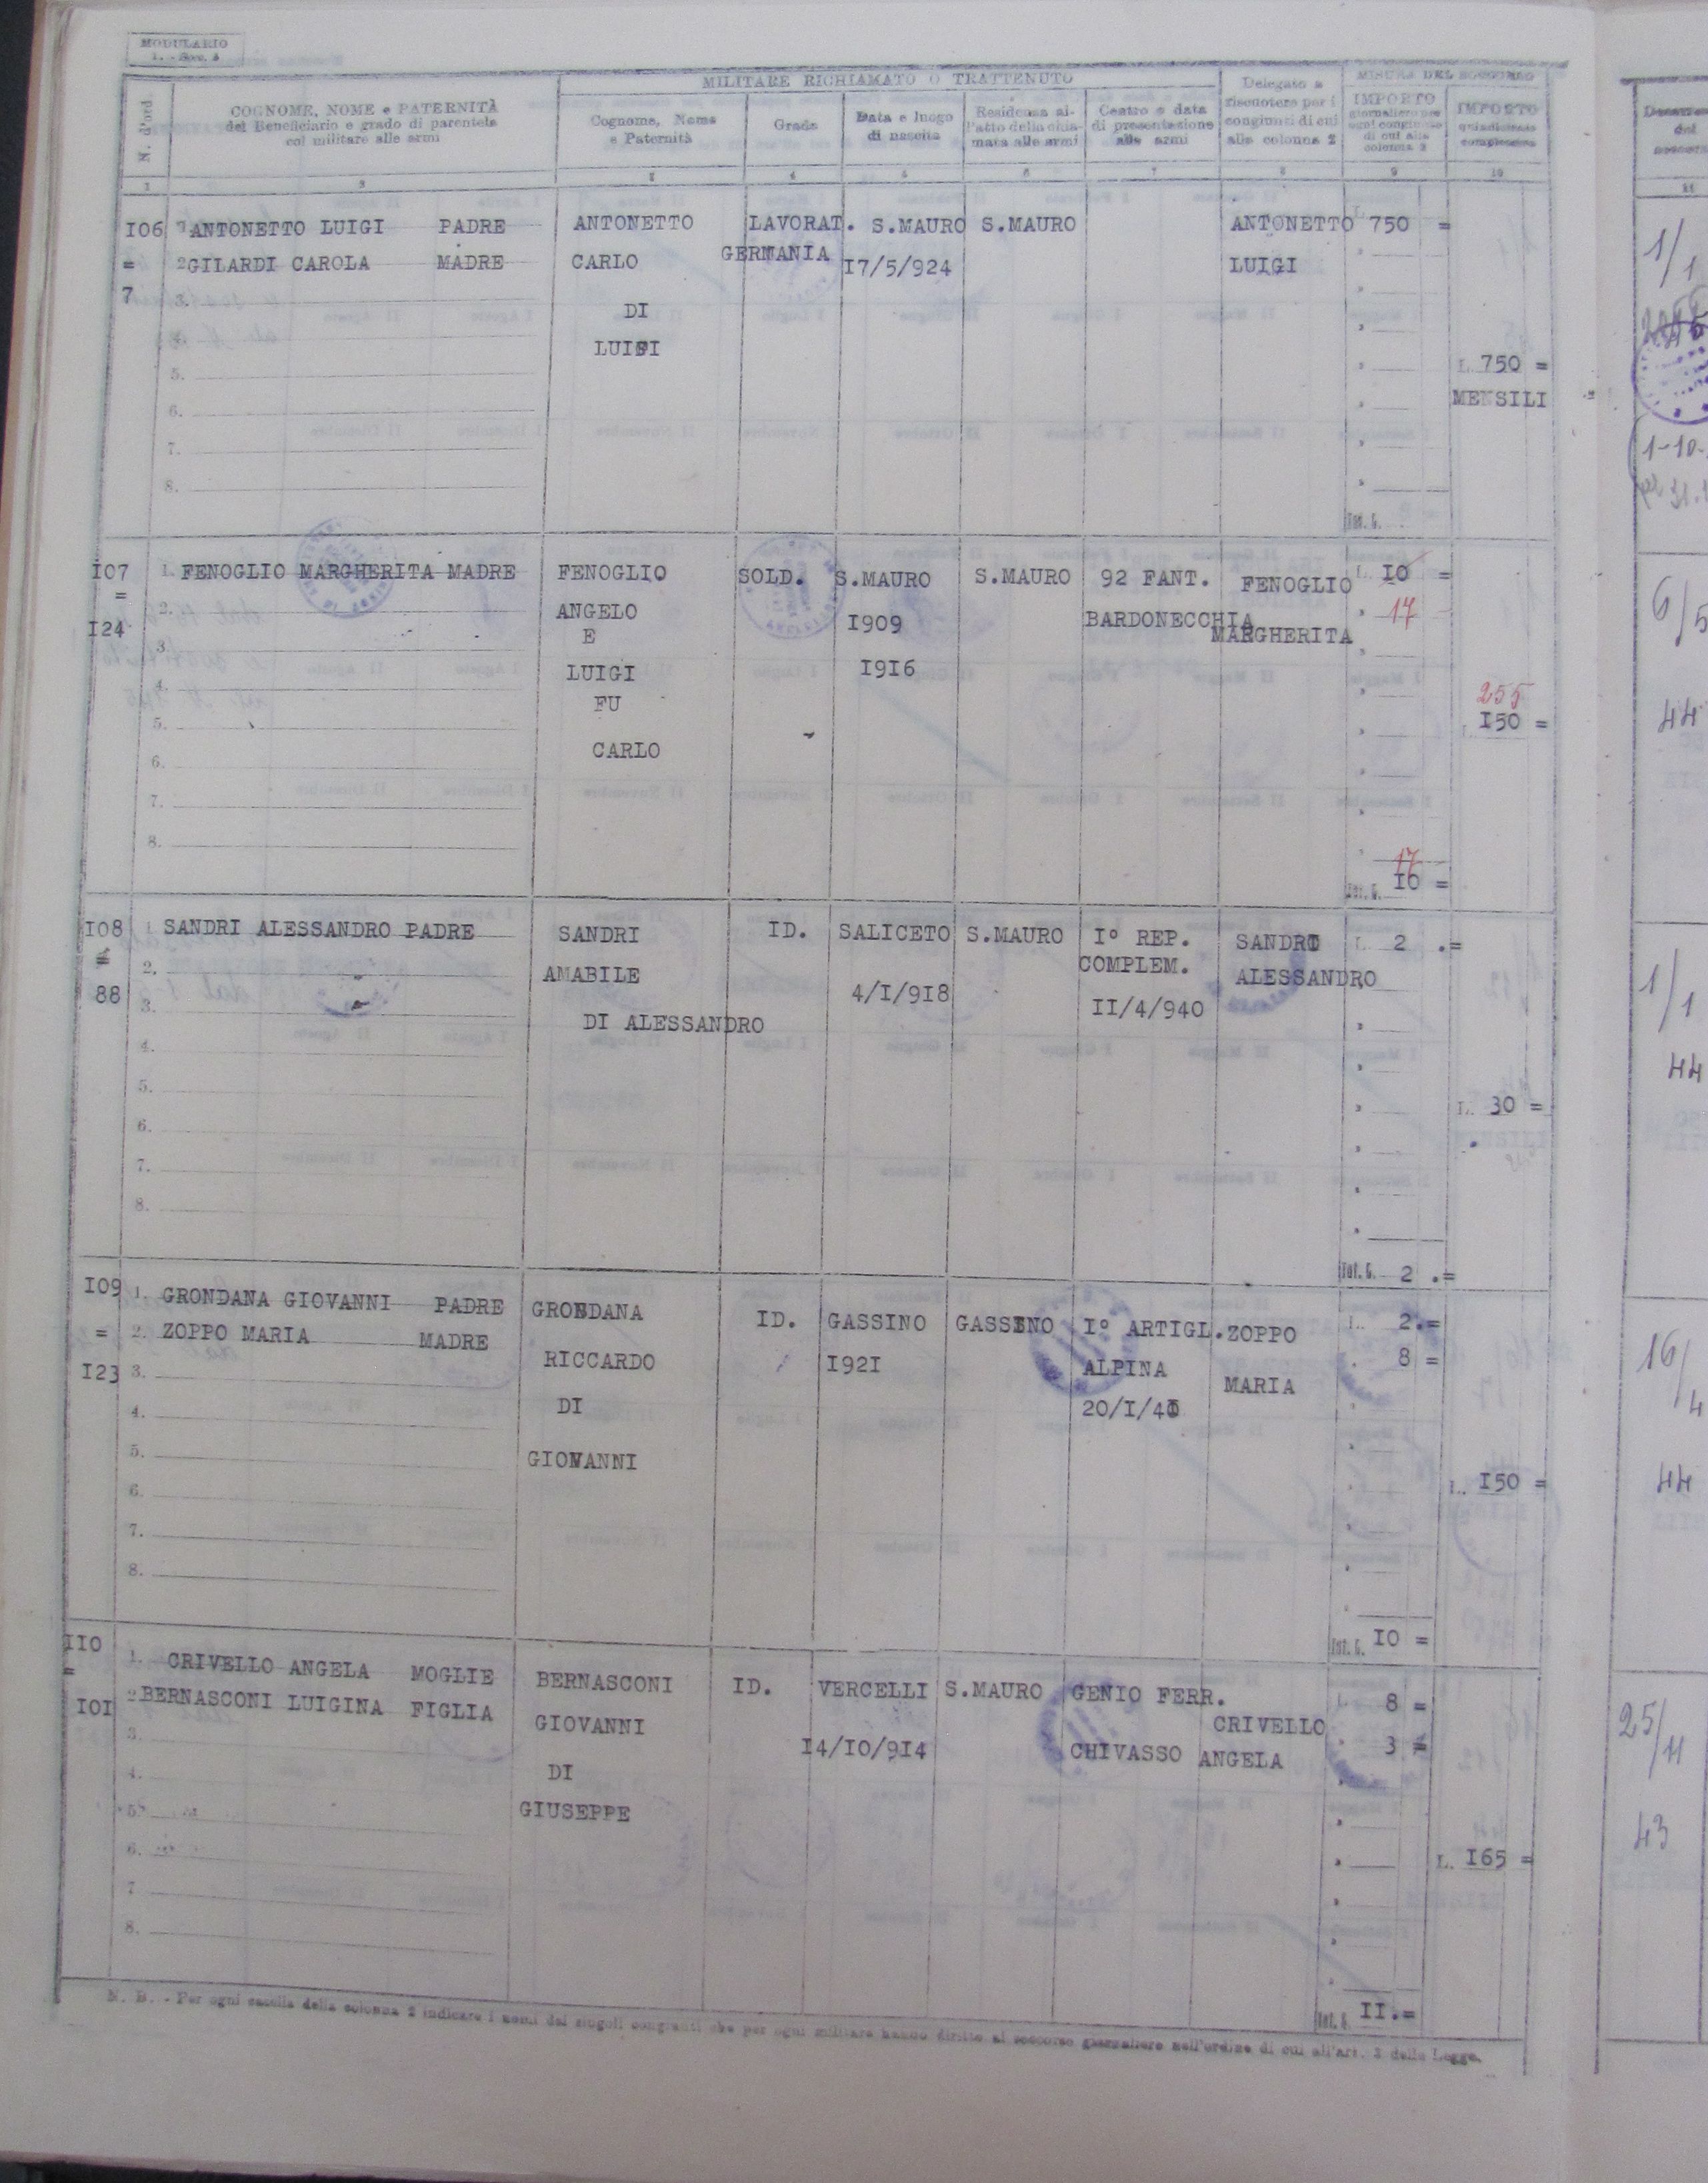 MODULARIO
MILITARE RICHIAMATO O TRATTENUTO
MISURA DEL SOCCORSO
N. d'ord.
COGNOME, NOME e PATERNITÀ
del Beneficiario e grado di parentela
col militare alle armi
Cognome, Nome
e Paternità
Grado
Data e luogo
di nascita
Residenza al-
l'atto della chia-
mata alle armi
Centro e data
di presentazione
alle armi
Delegato a
riscuotere per i
congiunti di cui
alla colonna 2
IMPORTO
giornaliero per
ogni congiunto
di cui alla
colonna 2
IMPORTO
quindicinale
complessivo
1 2 3 4 5 6 7 8 9 10
11
I06 ANTONETTO LUIGI PADRE ANTONETTO LAVORAT. S.MAURO S.MAURO ANTONETTO 750 =
= 2 GILARDI CAROLA MADRE CARLO GERMANIA I7/5/924 LUIGI
7 3. DI
LUIGI
5. L. 750 =
6. MENSILI
7.
8.
Tot. G.
1/1
1-10-
I07 1. FENOGLIO MARGHERITA MADRE FENOGLIO SOLD. S.MAURO S.MAURO 92 FANT. FENOGLIO L. I0 =
= 2. ANGELO I909 BARDONECCHIA MARGHERITA 17
I24 3. E
4. LUIGI I9I6
FU 255
5. CARLO L. I50 =
6.
7.
8. 17
Tot. G. I0 =
6/5
44
I08 1. SANDRI ALESSANDRO PADRE SANDRI ID. SALICETO S.MAURO I° REP. SANDRI L. 2 .=
= 2. AMABILE COMPLEM. ALESSANDRO
88 3. DI ALESSANDRO 4/I/9I8 II/4/940
4.
5. L. 30 =
6.
7.
8.
Tot. G. 2 .=
1/1
44
I09 1. GRONDANA GIOVANNI PADRE GRONDANA ID. GASSINO GASSINO I° ARTIGL. ZOPPO L. 2.=
= 2. ZOPPO MARIA MADRE RICCARDO I92I ALPINA MARIA 8 =
I23 3. DI 20/I/4
4. GIOVANNI
5. L. I50 =
6.
7.
8.
Tot. G. I0 =
16/4
44
II0 1. CRIVELLO ANGELA MOGLIE BERNASCONI ID. VERCELLI S.MAURO GENIO FERR. CRIVELLO L. 8 =
= 2. BERNASCONI LUIGINA FIGLIA GIOVANNI I4/I0/9I4 CHIVASSO ANGELA 3 =
I0I 3. DI
4. GIUSEPPE
5.
6. L. I65 =
7
8.
Tot. G. II.=
25/11
43
N. B. - Per ogni casella della colonna 2 indicare i nomi dei singoli congiunti che per ogni militare hanno diritto al soccorso giornaliero nell'ordine di cui all'Art. 2 della Legge.